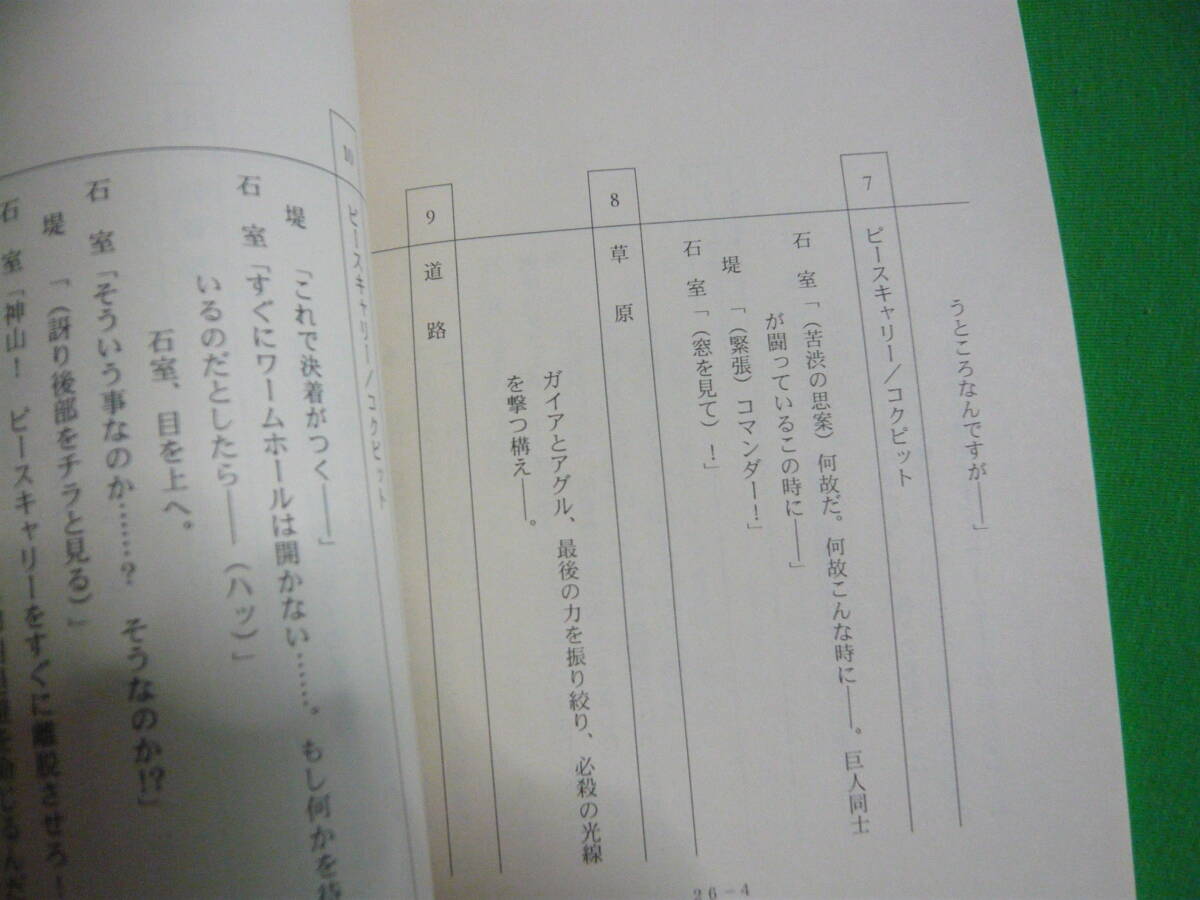 うところなんですが――」
7 ピースキャリー／コクピット
石室「（苦渋の思案）何故だ。何故こんな時に――。巨人同士
が闘っているこの時に――」
堤「（緊張）コマンダー！」
石室「（窓を見て）！」
8 草原
ガイアとアグル、最後の力を振り絞り、必殺の光線
を撃つ構え――。
9 道路
26－4
10 ピースキャリー／コクピット
堤「これで決着がつく――」
石室「すぐにワームホールは開かない……。もし何かを待
いるのだとしたら――（ハッ）」
石室、目を上へ。
石室「そういう事なのか……？　そうなのか!?」
堤「（訝り後部をチラと見る）」
石室「神山！　ピースキャリーをすぐに離脱させろ！